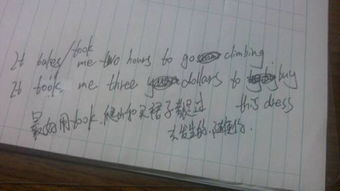 It takes/took me two hours to go climbing
It took me three dollars to buy
this dress
最好用took.爬山和买裙子都是过
去发生的.随便你.